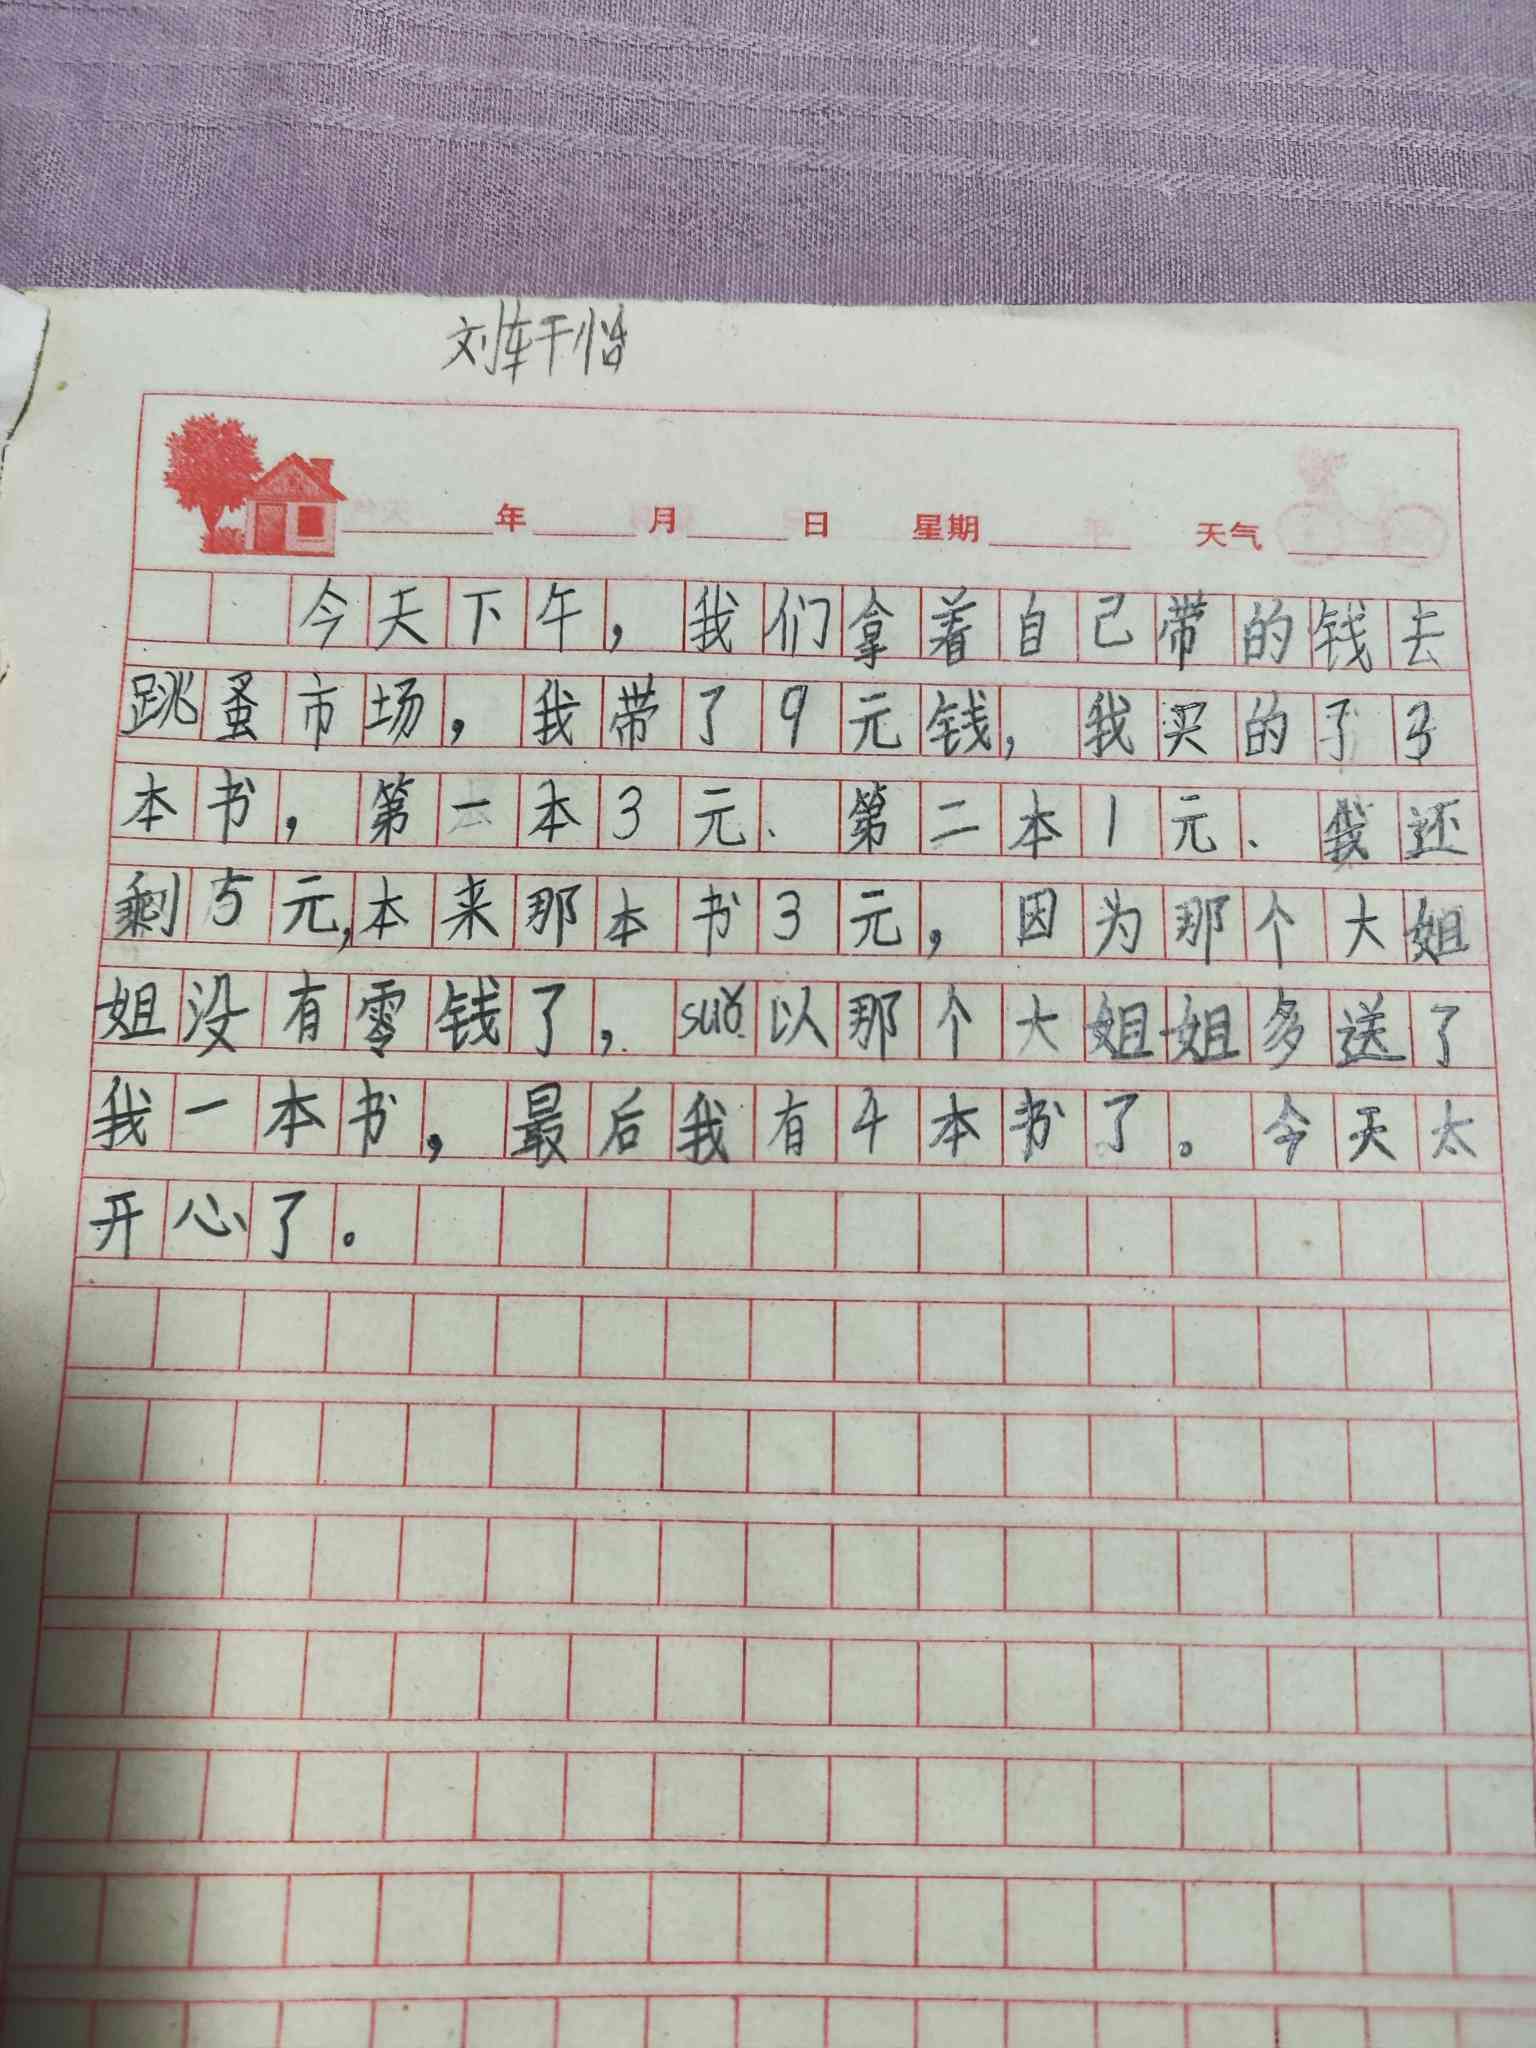 刘轩怡
年 月 日 星期 天气
今天下午，我们拿着自己带的钱去
跳蚤市场，我带了9元钱，我买的了3
本书，第一本3元、第二本1元、我还
剩5元，本来那本书3元，因为那个大姐
姐没有零钱了，suǒ以那个大姐姐多送了
我一本书，最后我有4本书了。今天太
开心了。